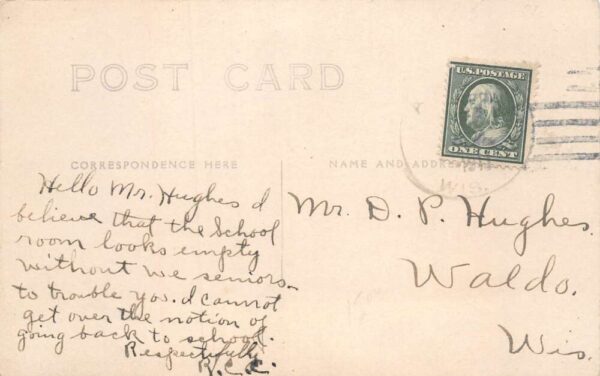 POST CARD
U.S. POSTAGE
ONE CENT
WIS.
CORRESPONDENCE HERE
NAME AND ADDRESS
Hello Mr. Hughes I
believe that the School
room looks empty
without we seniors
to trouble you. I cannot
get over the notion of
going back to school.
Respectfully
R. C. C.
Mr. D. P. Hughes.
Waldo.
Wis.